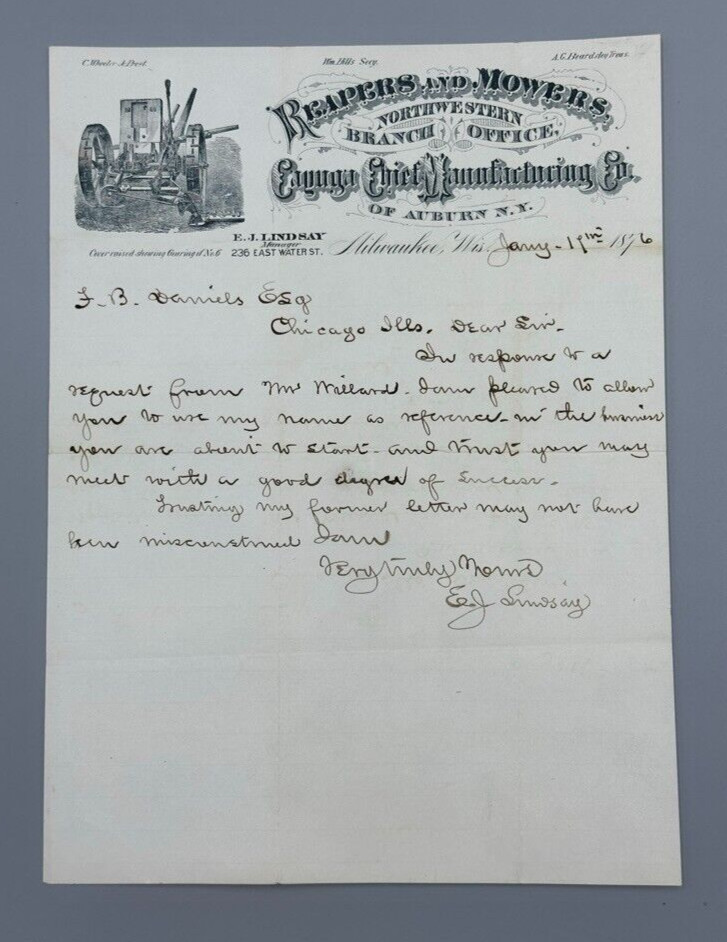 C. Wheeler Jr. Prest. Wm. Hills Secy. A. G. Beardsley Treas.
REAPERS AND MOWERS,
NORTHWESTERN
BRANCH OFFICE,
Cayuga Chief Manufacturing Co.
OF AUBURN N.Y.
E. J. LINDSAY
Manager
236 EAST WATER ST.
Cover raised showing Gearing of No. 6
Milwaukee, Wis. Jany. 1876
F. B. Daniels Esq
Chicago Ills. Dear Sir-
In response to a
request from Mr Willard - I am pleased to allow
you to use my name as reference - in the business
you are about to start - and trust you may
meet with a good degree of success -
Trusting my former letter may not have
been misconstrued I am
Very truly Yours
E. J Lindsay